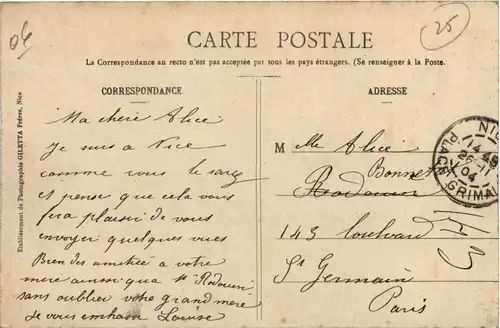 06
25
CARTE POSTALE
La Correspondance au recto n'est pas acceptée par tous les pays étrangers. (Se renseigner à la Poste.
CORRESPONDANCE
Ma chère Alice
Je suis a Nice
comme vous le savez
et pense que cela vous
fera plaisir de vous
envoyer quelques vues
Bien des amitiés a votre
mere ainsi qua
sans oublier votre grand mere
Je vous embrasse Louise
ADRESSE
M elle Alice
Bonnet
143 boulevard
St Germain
Paris
NI
PLACE GRIMAL
14 45
26-11
04
Etablissement de Photographie GILETTA Frères, Nice